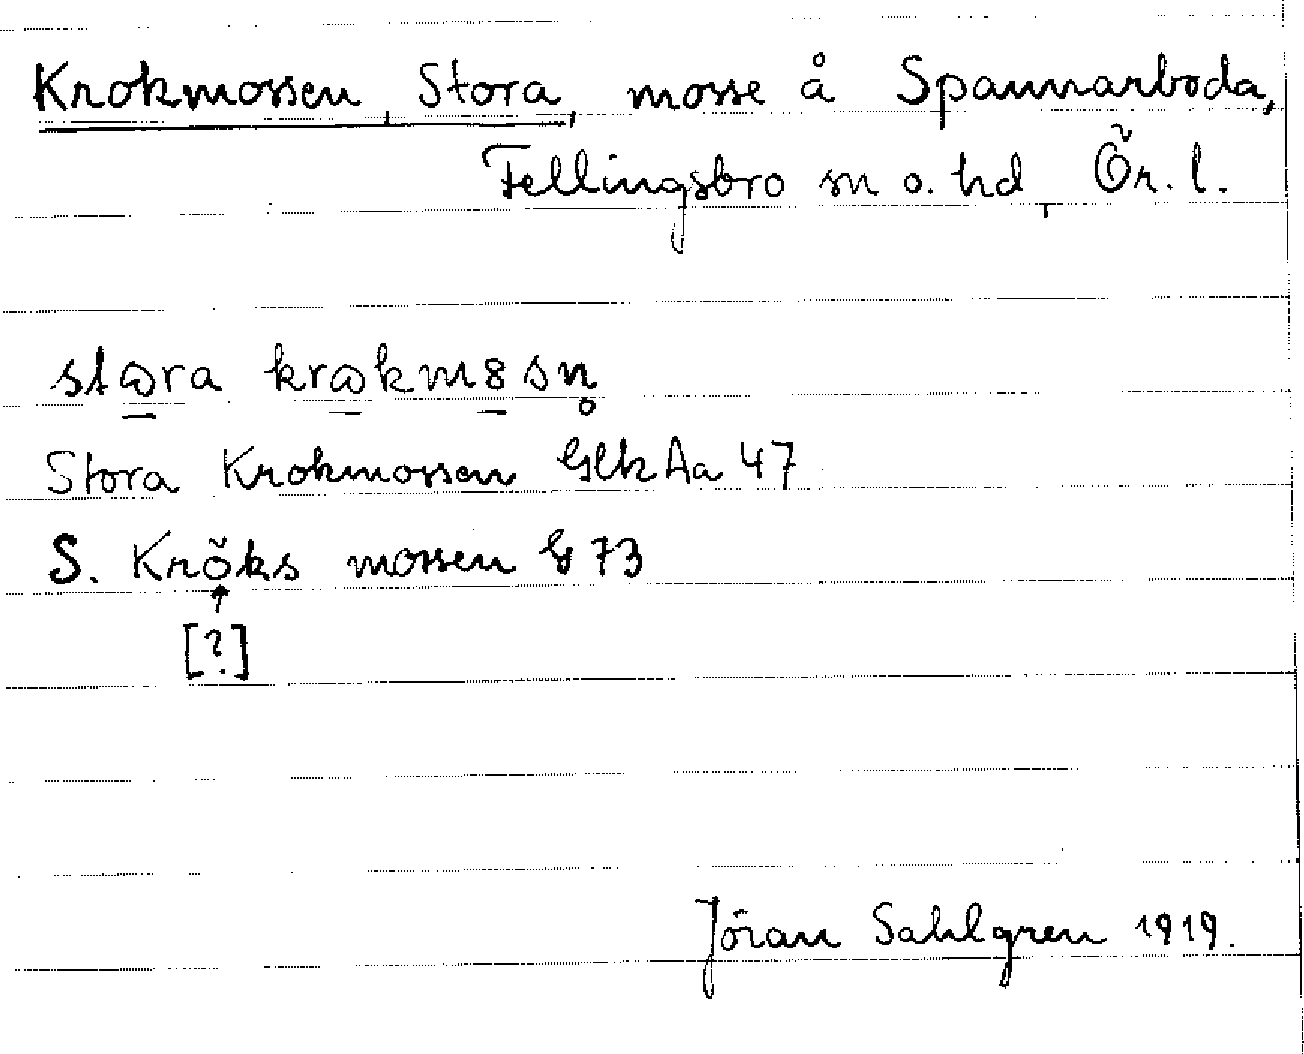 Krokmossen, Stora, mosse å Spannarboda,
Fellingsbro sn o. hd, Ör. l.
Stora Krokmossen GlkAa 47
S. Kröks mossen G 73
[?]
Jöran Sahlgren 1919.